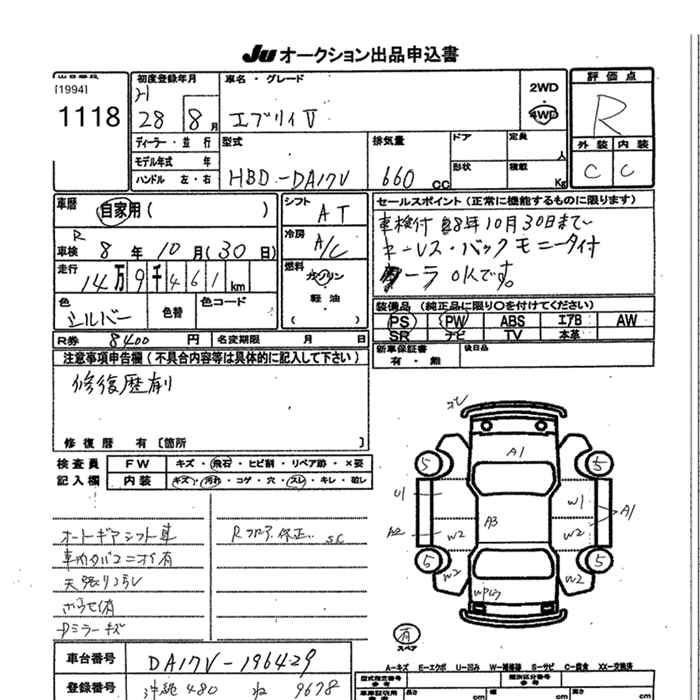 Ju オークション出品申込書
[1994]
1118
初度登録年月
28 8月
車名・グレード
エブリィV
2WD
4WD
評価点
R
外装 内装
C C
ディーラー・並行
モデル年式 年
ハンドル 左・右
型式
HBD-DA17V
排気量
660cc
ドア
形状
定員
人
積載
Kg
車歴
自家用( )
車検 R8年10月(30日)
走行
14万9千461km
色
シルバー
色替
色コード
シフト
AT
冷房
A/C
燃料
ガソリン
軽油
( )
セールスポイント(正常に機能するものに限ります)
車検付 R8年10月30日まで
キーレス・バックモニータ付
クーラOKです。
装備品(純正品に限り○を付けてください)
PS PW ABS エアB AW
SR ナビ TV 本革
R券 8400円
名変期限 月 日
新車保証書
有・無
後日品
注意事項申告欄(不具合内容等は具体的に記入して下さい)
修復歴有
修復暦 有〔箇所 〕
検査員
記入欄
FW キズ・飛石・ヒビ割・リペア跡・×要
内装 キズ・汚れ・コゲ・穴・スレ・キレ・破レ
オートギアシフト車
車内タバコニオイ有
天張りヨゴレ
Dミラーキズ
Rフロア修正 SC
A1
5
5
U1
A2
W2
W2
A3
W1
W2
W2
A1
5
5
有
スペア
A-キズ E-エクボ U-凹み W-補修跡 S-サビ C-腐食 XX-交換済
車台番号
DA17V-196429
登録番号
沖縄 480 ね 9678
型式指定番号
類別区分番号
長さ cm
幅 cm
高さ cm